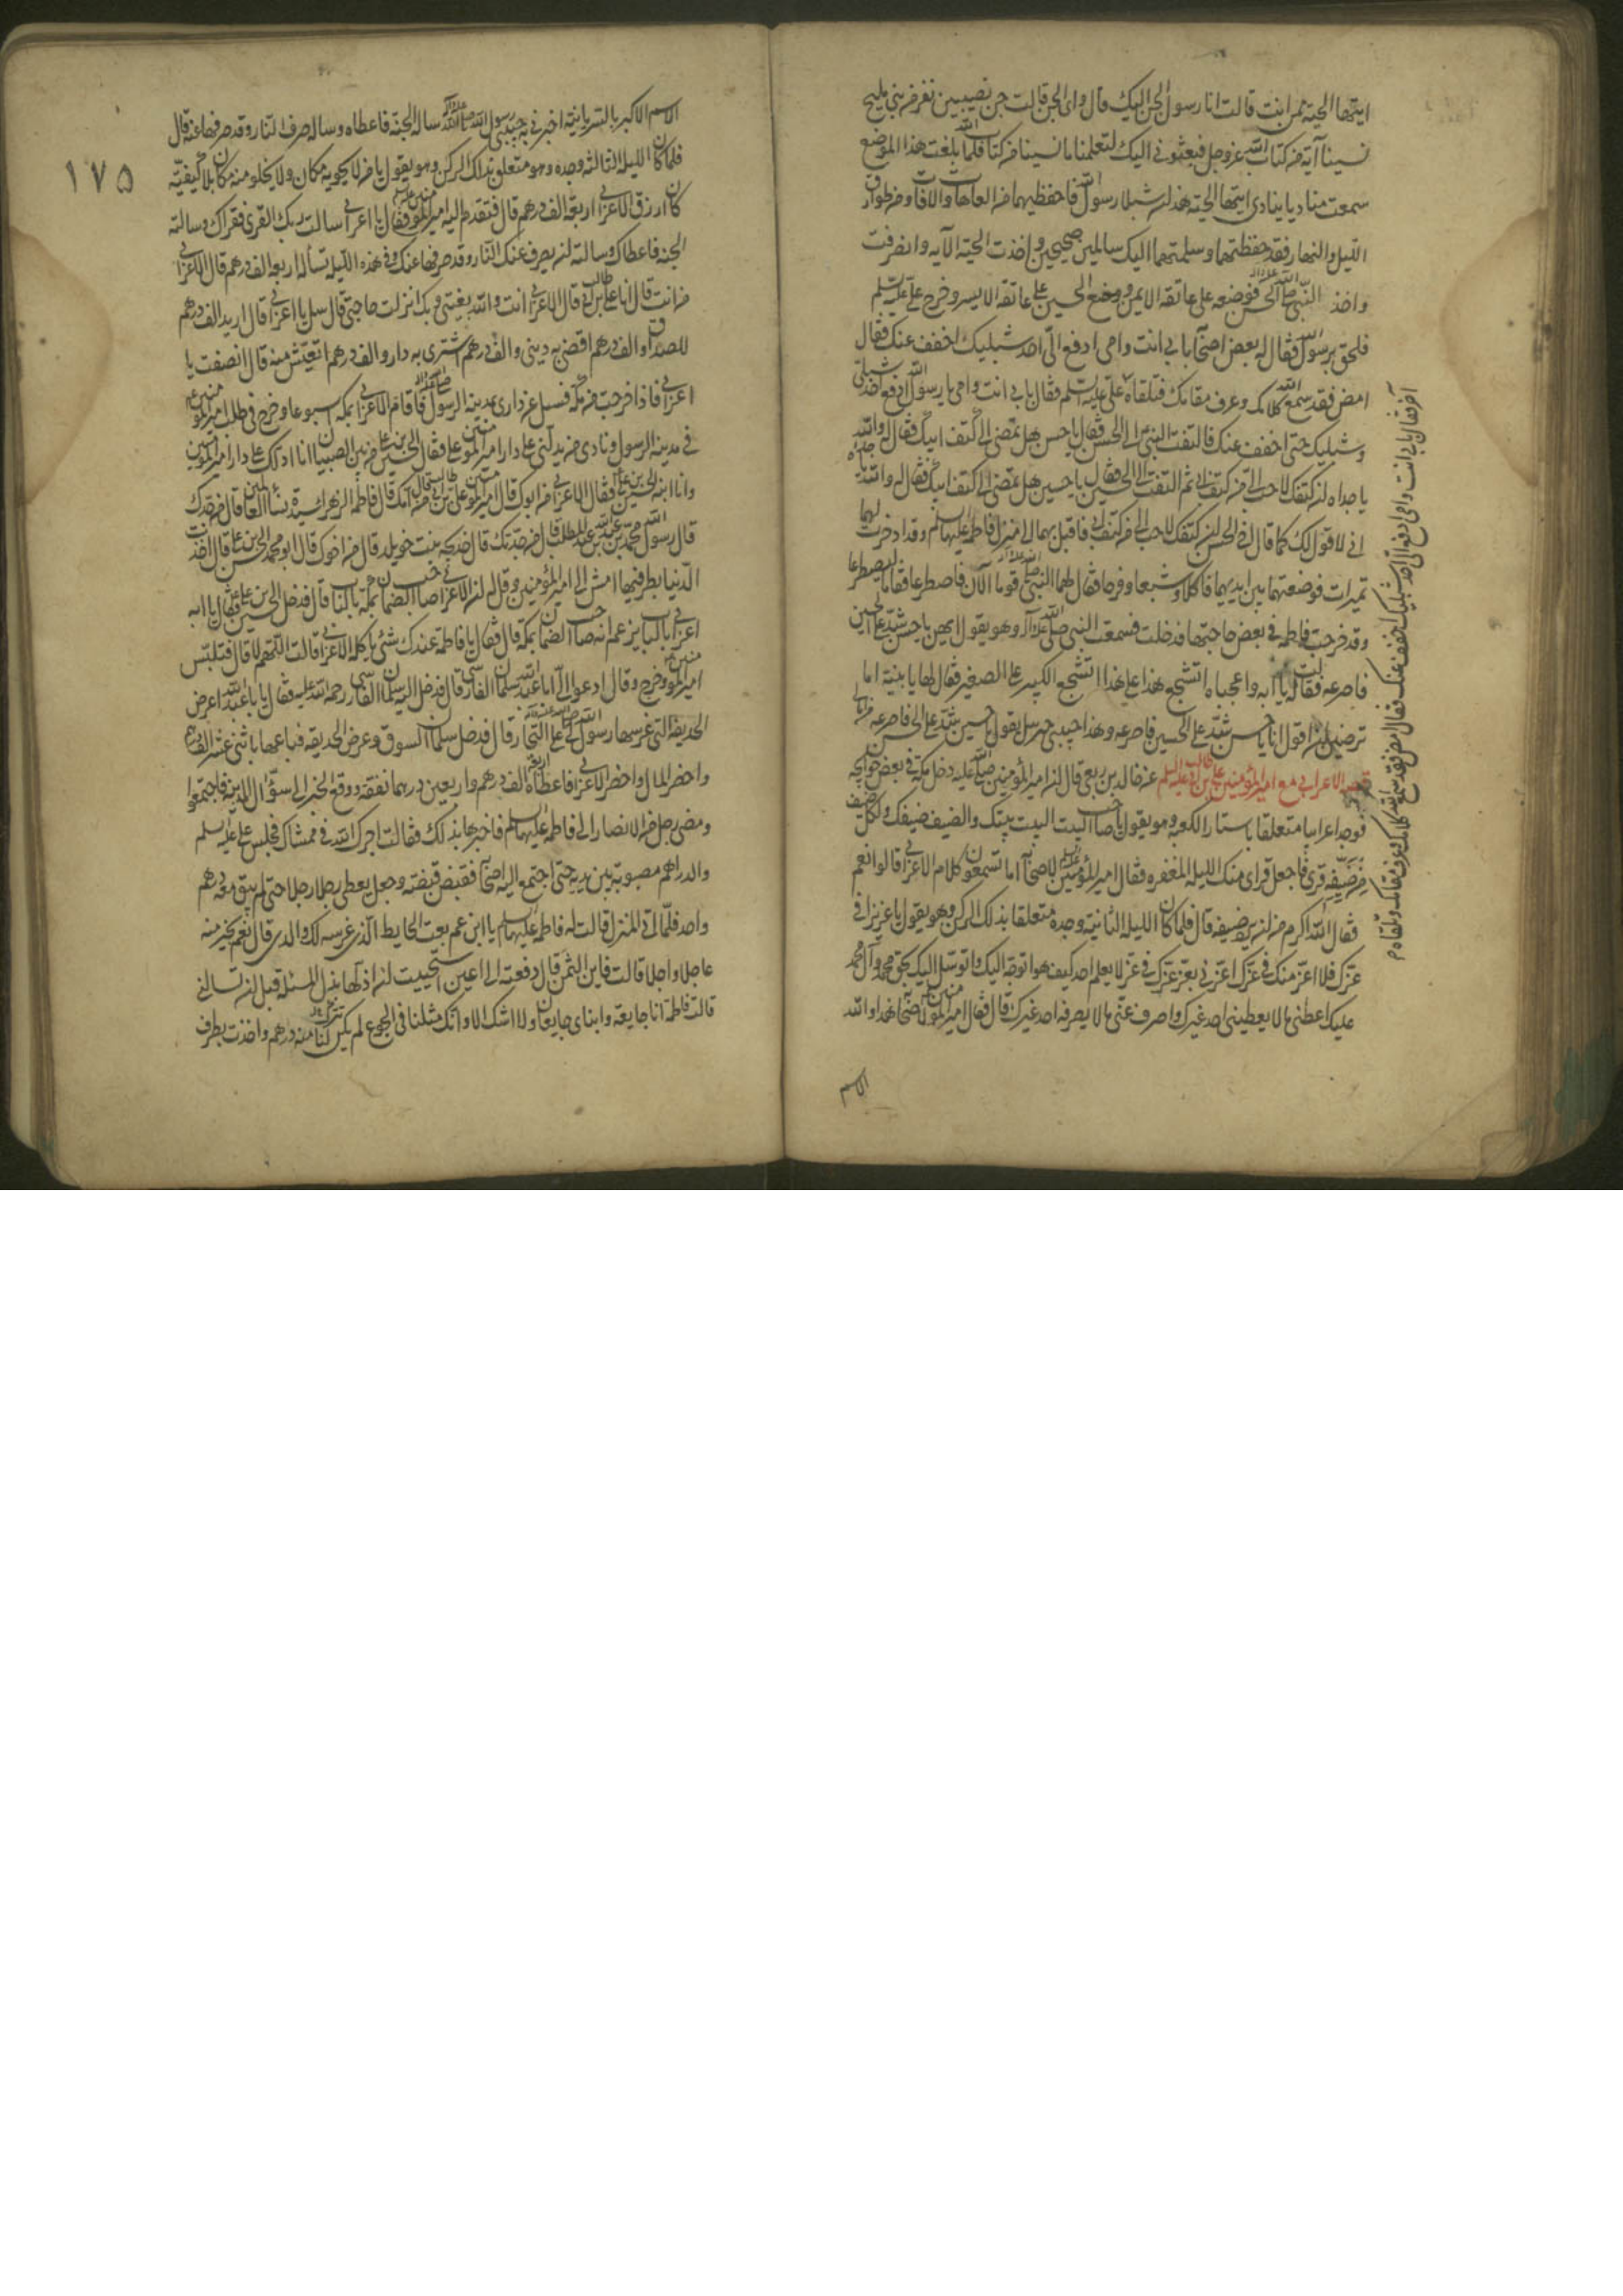 ايتها الحية ممن انت قالت انا رسول الجن اليك قال واى الجن قالت جن نصيبين نفر من بنى مليح
نسينا آية من كتاب الله عز وجل فبعثونى اليك لتعلمنا ما نسينا من كتاب الله فلما بلغت هذا الموضع
سمعت مناديا ينادى ايتها الحية هذان شبلا رسول الله فاحفظيهما من العاهات والافات ومن طوارق
الليل والنهار فقد حفظتهما وسلمتهما اليك سالمين صحيحين واخذت الحية الآية وانصرفت
واخذ النبى صلى الله عليه وآله الحسن فوضعه على عاتقه الايمن ووضع الحسين على عاتقه الايسر وخرج على عليه السلم
فلحق برسول الله فقال له بعض اصحابه بابى انت وامى ادفع الى احد شبليك اخفف عنك فقال
امض فقد سمع الله كلامك وعرف مقامك فتلقاه على عليه السلم فقال بابى انت وامى يا رسول الله ادفع احد شبلى
وشبليك حتى اخفف عنك فالتفت النبى الى الحسن فقال يا حسن هل تمضى الى كتف ابيك فقال له والله
يا جداه ان كتفك لاحب الى من كتف ابى ثم التفت الى الحسين فقال يا حسين هل تمضى الى كتف ابيك فقال له والله يا جداه
انى لاقول لك كما قال اخى الحسن ان كتفك لاحب الى من كتف ابى فاقبل بهما الى منزل فاطمة عليها السلم وقد ادخرت لهما
تميرات فوضعتها بين ايديهما فاكلا وشبعا وفرحا فقال لهما النبى صلى الله عليه وآله قوما الآن فاصطرعا فقاما ليصطرعا
وقد خرجت فاطمة فى بعض حاجتها فدخلت فسمعت النبى صلى الله عليه وآله وهو يقول ايهن يا حسن شد على الحسين
فاصرعه فقالت يا ابه واعجباه اتشجع هذا على هذا اتشجع الكبير على الصغير فقال لها يا بنية اما
ترضين ان اقول انا يا حسن شد على الحسين فاصرعه وهذا حبيبى جبرئيل يقول يا حسين شد على الحسن فاصرعه
قصة الاعرابى مع امير المؤمنين على بن ابى طالب عليه السلم عن خالد بن ربعى قال ان امير المؤمنين صلى الله عليه دخل مكة فى بعض حوائجه
فوجد اعرابيا متعلقا باستار الكعبه وهو يقول يا صاحب البيت البيت بيتك والضيف ضيفك ولكل ضيف
من ضيفه قرى فاجعل قراى منك الليله المغفره فقال امير المؤمنين عليه السلم لاصحابه اما تسمعون كلام الاعرابى قالوا نعم
فقال الله اكرم من ان يرد ضيفه قال فلما كان الليلة الثانيه وجده متعلقا بذلك الركن وهو يقول يا عزيزا فى
عزك فلا اعز منك فى عزك اعزنى بعز عزك فى عز لا يعلم احد كيف هو اتوجه اليك واتوسل اليك بحق محمد وآل محمد
عليك اعطنى ما لا يعطينى احد غيرك واصرف عنى ما لا يصرفه احد غيرك قال فقال امير المؤمنين لاصحابه هذا والله
الاسم
آخر فقال بابى انت وامى ادفع الى احد شبليك اخفف عنك فقال امض فقد سمع الله كلامك وعرف مقامك وتلقاه م
١٧٥
الاسم الاكبر بالسريانيه اخبرنى به حبيبى رسول الله صلى الله عليه وآله ساله الجنة فاعطاه وساله صرف النار وقد صرفها عنه قال
فلما كان الليلة الثالثه وجده وهو متعلق بذلك الركن وهو يقول يا من لا يحويه مكان ولا يخلو منه مكان بلا كيفية
كان ارزق الاعرابى اربعة الف درهم قال فتقدم اليه امير المؤمنين فقال يا اعرابى سالت ربك القرى فقراك وسالته
الجنه فاعطاك وسالته ان يصرف عنك النار وقد صرفها عنك وفى هذه الليله تسأله اربعة الف درهم قال الاعرابى
من انت قال انا على بن ابى طالب قال الاعرابى انت والله بغيتى وبك انزلت حاجتى قال سل يا اعرابى قال اريد الف درهم
للصداق والف درهم اقضى به دينى والف درهم اشترى به دار والف درهم اتعيش منه قال انصفت يا
اعرابى فاذا خرجت من مكه فسل عن دارى بمدينه الرسول فاقام الاعرابى بمكه اسبوعا وخرج فى طلب امير المؤمنين
فى مدينه الرسول ونادى من يدلنى على دار امير المؤمنين على فقال الحسين بن على من بين الصبيان انا ادلك على دار امير المؤمنين
وانا ابنه الحسين بن على فقال الاعرابى من ابوك قال امير المؤمنين على بن ابى طالب قال من امك قال فاطمة الزهراء سيدة نساء العالمين قال من جدك
قال رسول الله محمد بن عبد الله بن عبد المطلب قال من جدتك قال خديجه بنت خويلد قال من اخوك قال ابو محمد الحسن بن على قال اخذت
الدنيا بطرفيها امش الى امير المؤمنين وقل له ان الاعرابى صاحب الضمان بمكه بالباب قال فدخل الحسين بن على فقال يا ابه
اعرابى بالباب يزعم انه صاحب الضمان بمكه قال فقال يا فاطمة عندك شئ ياكله الاعرابى قالت اللهم لا قال فتلبس
امير المؤمنين وخرج وقال ادعوا الى ابا عبد الله سلمان الفارسى قال فدخل اليه سلمان الفارسى رحمة الله عليه فقال يا با عبد الله اعرض
الحديقه التى غرسها رسول الله صلى الله عليه وآله لى على التجار قال فدخل سلمان السوق وعرض الحديقه فباعها باثنى عشر الف درهم
واحضر المال واحضر الاعرابى فاعطاه اربعة الف درهم واربعين درهما نفقه ووقع الخبر الى سؤال المدينه فاجتمعوا
ومضى رجل من الانصار الى فاطمه عليها السلم فاخبرها بذلك فقالت اجرك الله فى ممشاك فجلس على عليه السلم
والدراهم مصبوبة بين يديه حتى اجتمع اليه اصحابه فقبض قبضه وجعل يعطى رجلا رجلا حتى لم يبق معه درهم
واحد فلما اتى المنزل قالت له فاطمة عليها السلم يا ابن عم بعت الحايط الذى غرسه لك والدى قال نعم بخير منه
عاجلا واجلا قالت فاين الثمن قال دفعته الى اعين استحييت ان اذلها بذل المسئله قبل ان تسالنى
قالت فاطمة انا جايعة وابناى جايعان ولا اشك الا وانك مثلنا فى الجوع لم يكن لنا منه درهم واخذت بطرف